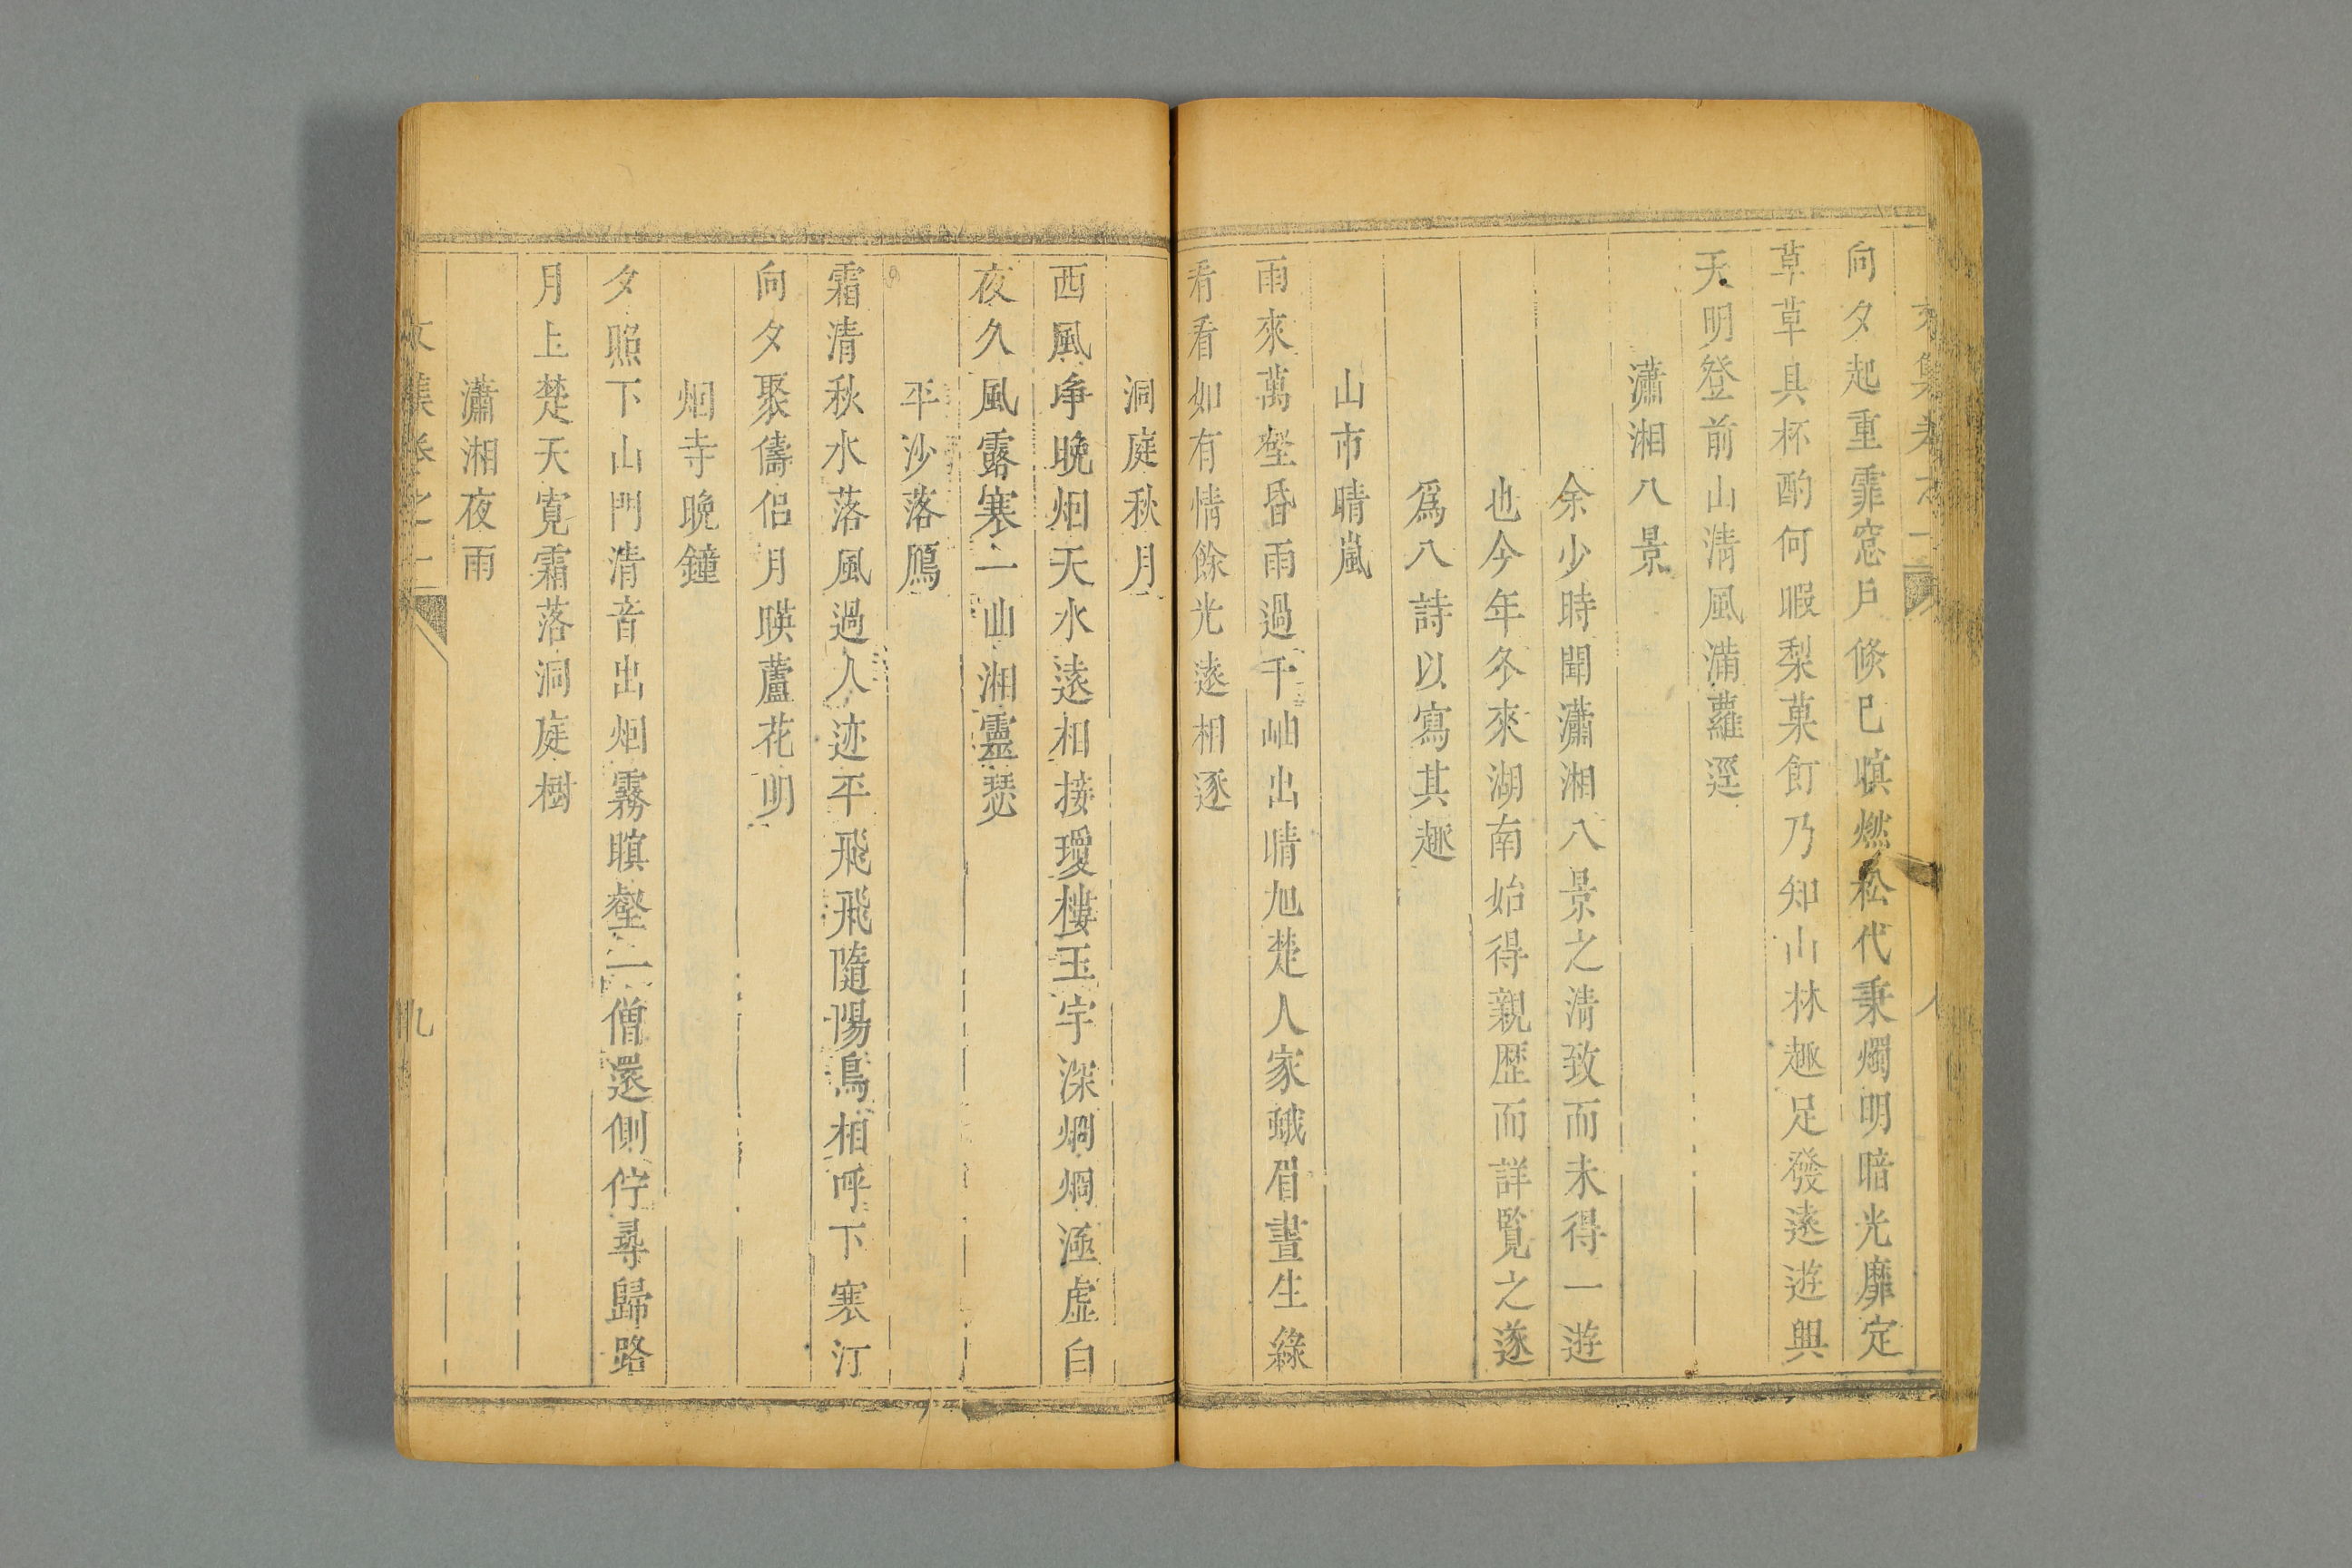 向夕起重霏窓戶倏已暝燃松代秉燭明暗光靡定
草草具杯酌何暇梨菓飣乃知山林趣足發遠遊興
天明登前山清風滿蘿逕
瀟湘八景
余少時聞瀟湘八景之清致而未得一遊
也今年冬來湖南始得親歷而詳覧之遂
爲八詩以寫其趣
山市晴嵐
雨來萬壑昏雨過千岫出晴旭楚人家蛾眉晝生綠
看看如有情餘光遠相逐
洞庭秋月
西風净晚烟天水遠相接瓊樓玉宇深烱烱涵虛白
夜久風露寒一曲湘靈瑟
平沙落鴈
霜清秋水落風過人迹平飛飛隨陽鳥相呼下寒汀
向夕聚儔侣月暎蘆花明
烟寺晚鐘
夕照下山門清音出烟霧暝壑一僧還側佇尋歸路
月上楚天寛霜落洞庭樹
瀟湘夜雨
文集卷之二
九